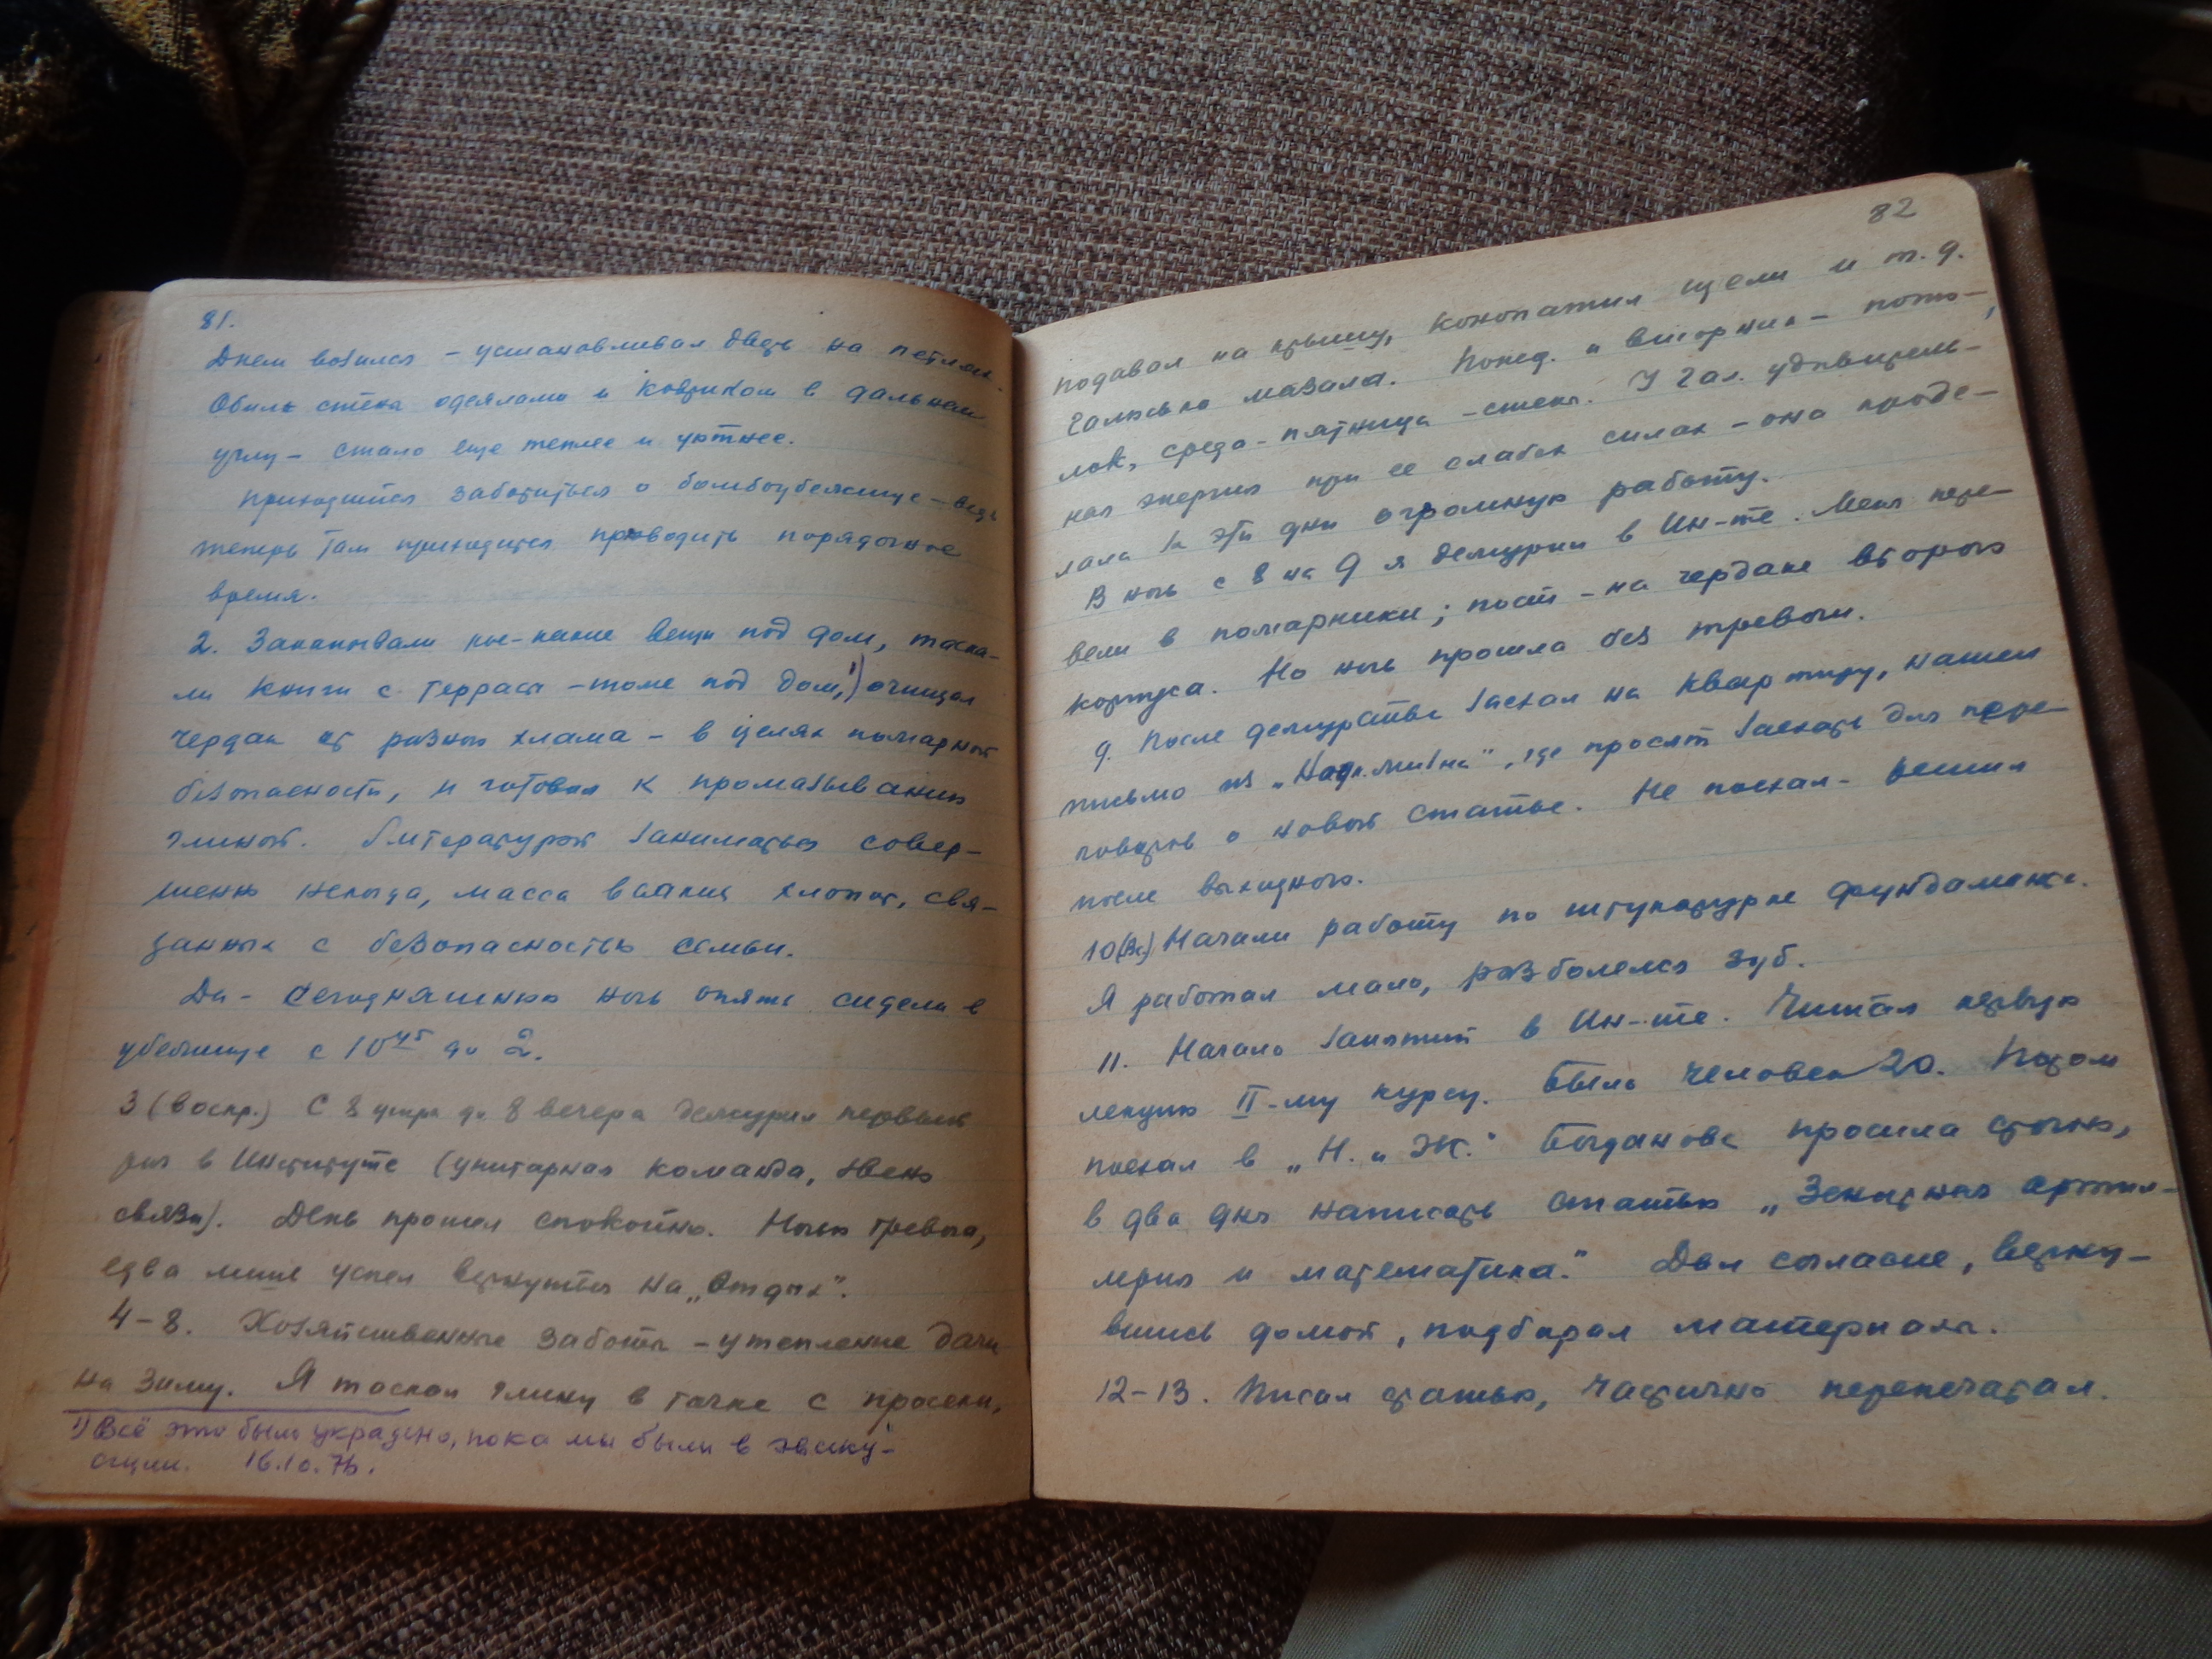 81.
Днем возился – устанавливал дверь на петлях.
Обили стены одеялами и ковриком в дальнем
углу – стало еще теплее и уютнее.
Приходится заботиться о бомбоубежище – ведь
теперь там приходится проводить порядочное
время.
2. Закапывали кое-какие вещи под дом, таска-
ли книги с террасы – тоже под дом,¹) очищал
чердак от разного хлама – в целях пожарной
безопасности, и готовил к промазыванию
глиной. Литературой заниматься совер-
шенно некогда, масса всяких хлопот, свя-
занных с безопасностью семьи.
Да – сегодняшнюю ночь опять сидели в
убежище с 10 45 до 2.
3 (воскр.) С 8 утра до 8 вечера дежурил первый
раз в Институте (унитарная команда, звено
связи). День прошел спокойно. Ночью тревога,
едва лишь успел вернуться на „Отдых".
4–8. Хозяйственные заботы – утепление дачи
на зиму. Я таскал глину в тачке с просеки,
¹) Всё это было украдено, пока мы были в эваку-
ации. 16.10.76.
82
подавал на крышу, конопатил щели и т.д.
Галюська мазала. Понед. и вторник – пото-
лок, среда – пятница – стены. У Гал. удивитель-
ная энергия при ее слабых силах – она проде-
лала за эти дни огромную работу.
В ночь с 8 на 9 я дежурил в Ин-те. Меня пере-
вели в пожарники; пост – на чердаке второго
корпуса. Но ночь прошла без тревоги.
9. После дежурства заехал на квартиру, нашел
письмо из где просят заехать для пере-
говоров о новой статье. Не поехал – решил
после выходного.
10 (Вс.) Начали работу по штукатурке фундамента.
Я работал мало, разболелся зуб.
11. Начало занятий в Ин-те. Читал первую
лекцию II-му курсу. Было человек 20. Потом
поехал в „Н. и Ж." Богданова просила срочно,
в два дня написать статью „Зенитная артил-
лерия и математика." Дал согласие, верну-
вшись домой, подбирал материалы.
12–13. Писал статью, частично перепечатал.